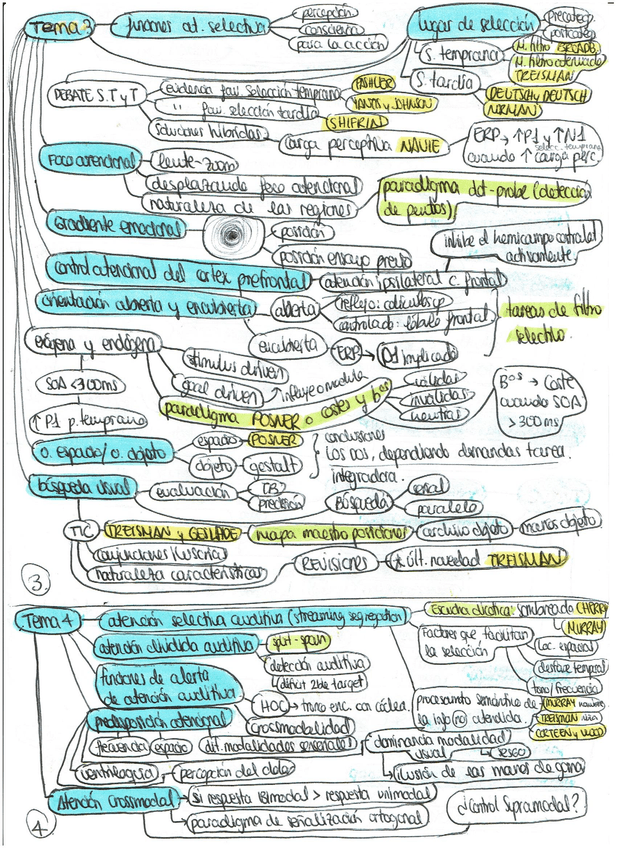 Tema 3
funciones at. selectiva
percepción
consciencia
para la acción
lugar de selección
precateg.
postcateg.
S. temprana
M. filtro BROADB.
M. filtro atenuado
TREISMAN
S. tardía
DEUTSCH y DEUTSCH
NORMAN
DEBATE S.T y T
evidencia fav. selección temprana
PASHLER
" fav. selección tardía
YANTIS y JOHNSON
SHIFRIN
soluciones híbridas
carga perceptiva NAVIE
ERP → ↑P1 y ↑N1
selecc. temprana
cuando ↑ carga perc.
Foco atencional
lente-zoom
desplazando foco atencional
naturaleza de las regiones
paradigma dot-probe (detección
de puntos)
Gradiente emocional
posición
posición ensayo previo
control atencional del cortex prefrontal
atención ipsilateral c. frontal
inhibe el hemicampo contralat.
activamente.
orientación abierta y encubierta
abierta
reflejo: colículos
controlado: lóbulo frontal
encubierta
ERP → Od implicado
tareas de filtro
selectivo.
exógena y endógena
stimulus driven
goal driven
influye o modula
SOA < 300ms
↑ P1 p. temprano
paradigma POSNER o costes y bºs
válidas
inválidas
neutras
Bºs → Coste
cuando SOA
> 300ms
o. espacio / o. objeto
espacio
POSNER
objeto
gestalt
conclusiones
los dos, dependiendo demandas tarea.
integradora.
búsqueda visual
evaluación
TR
precisión
Búsqueda
serial
paralelo
TIC
TREISMAN y GELADE
mapa maestro posiciones
archivo objeto
marcos objeto.
conjunciones ilusorias
naturaleza características
REVISIONES
últ. novedad TREISMAN
3.
Tema 4
atención selectiva auditiva (streaming segregation)
Escucha dicótica: sombreado CHERRY
MURRAY
atención dividida auditiva
split-span
Factores que facilitan
la selección
loc. espacial
desfase temporal
tono / frecuencia
detección auditiva
déficit 2ble target
funciones de alerta
de atención auditiva
HOC → trono enc. con cóclea.
Crossmodalidad
procesamiento semántico de
la info (no) atendida.
MURRAY
TREISMAN
CORTEEN y WOOD
predisposición atencional
frecuencia
espacio
dif. modalidades sensoriales
dominancia modalidad?
visual
sesgo
ilusión de las manos de goma
ventriloquia
percepción del dolor
Atención Crossmodal
si respuesta bimodal > respuesta unimodal
paradigma de señalización ortogonal
¿Control Supramodal?
4